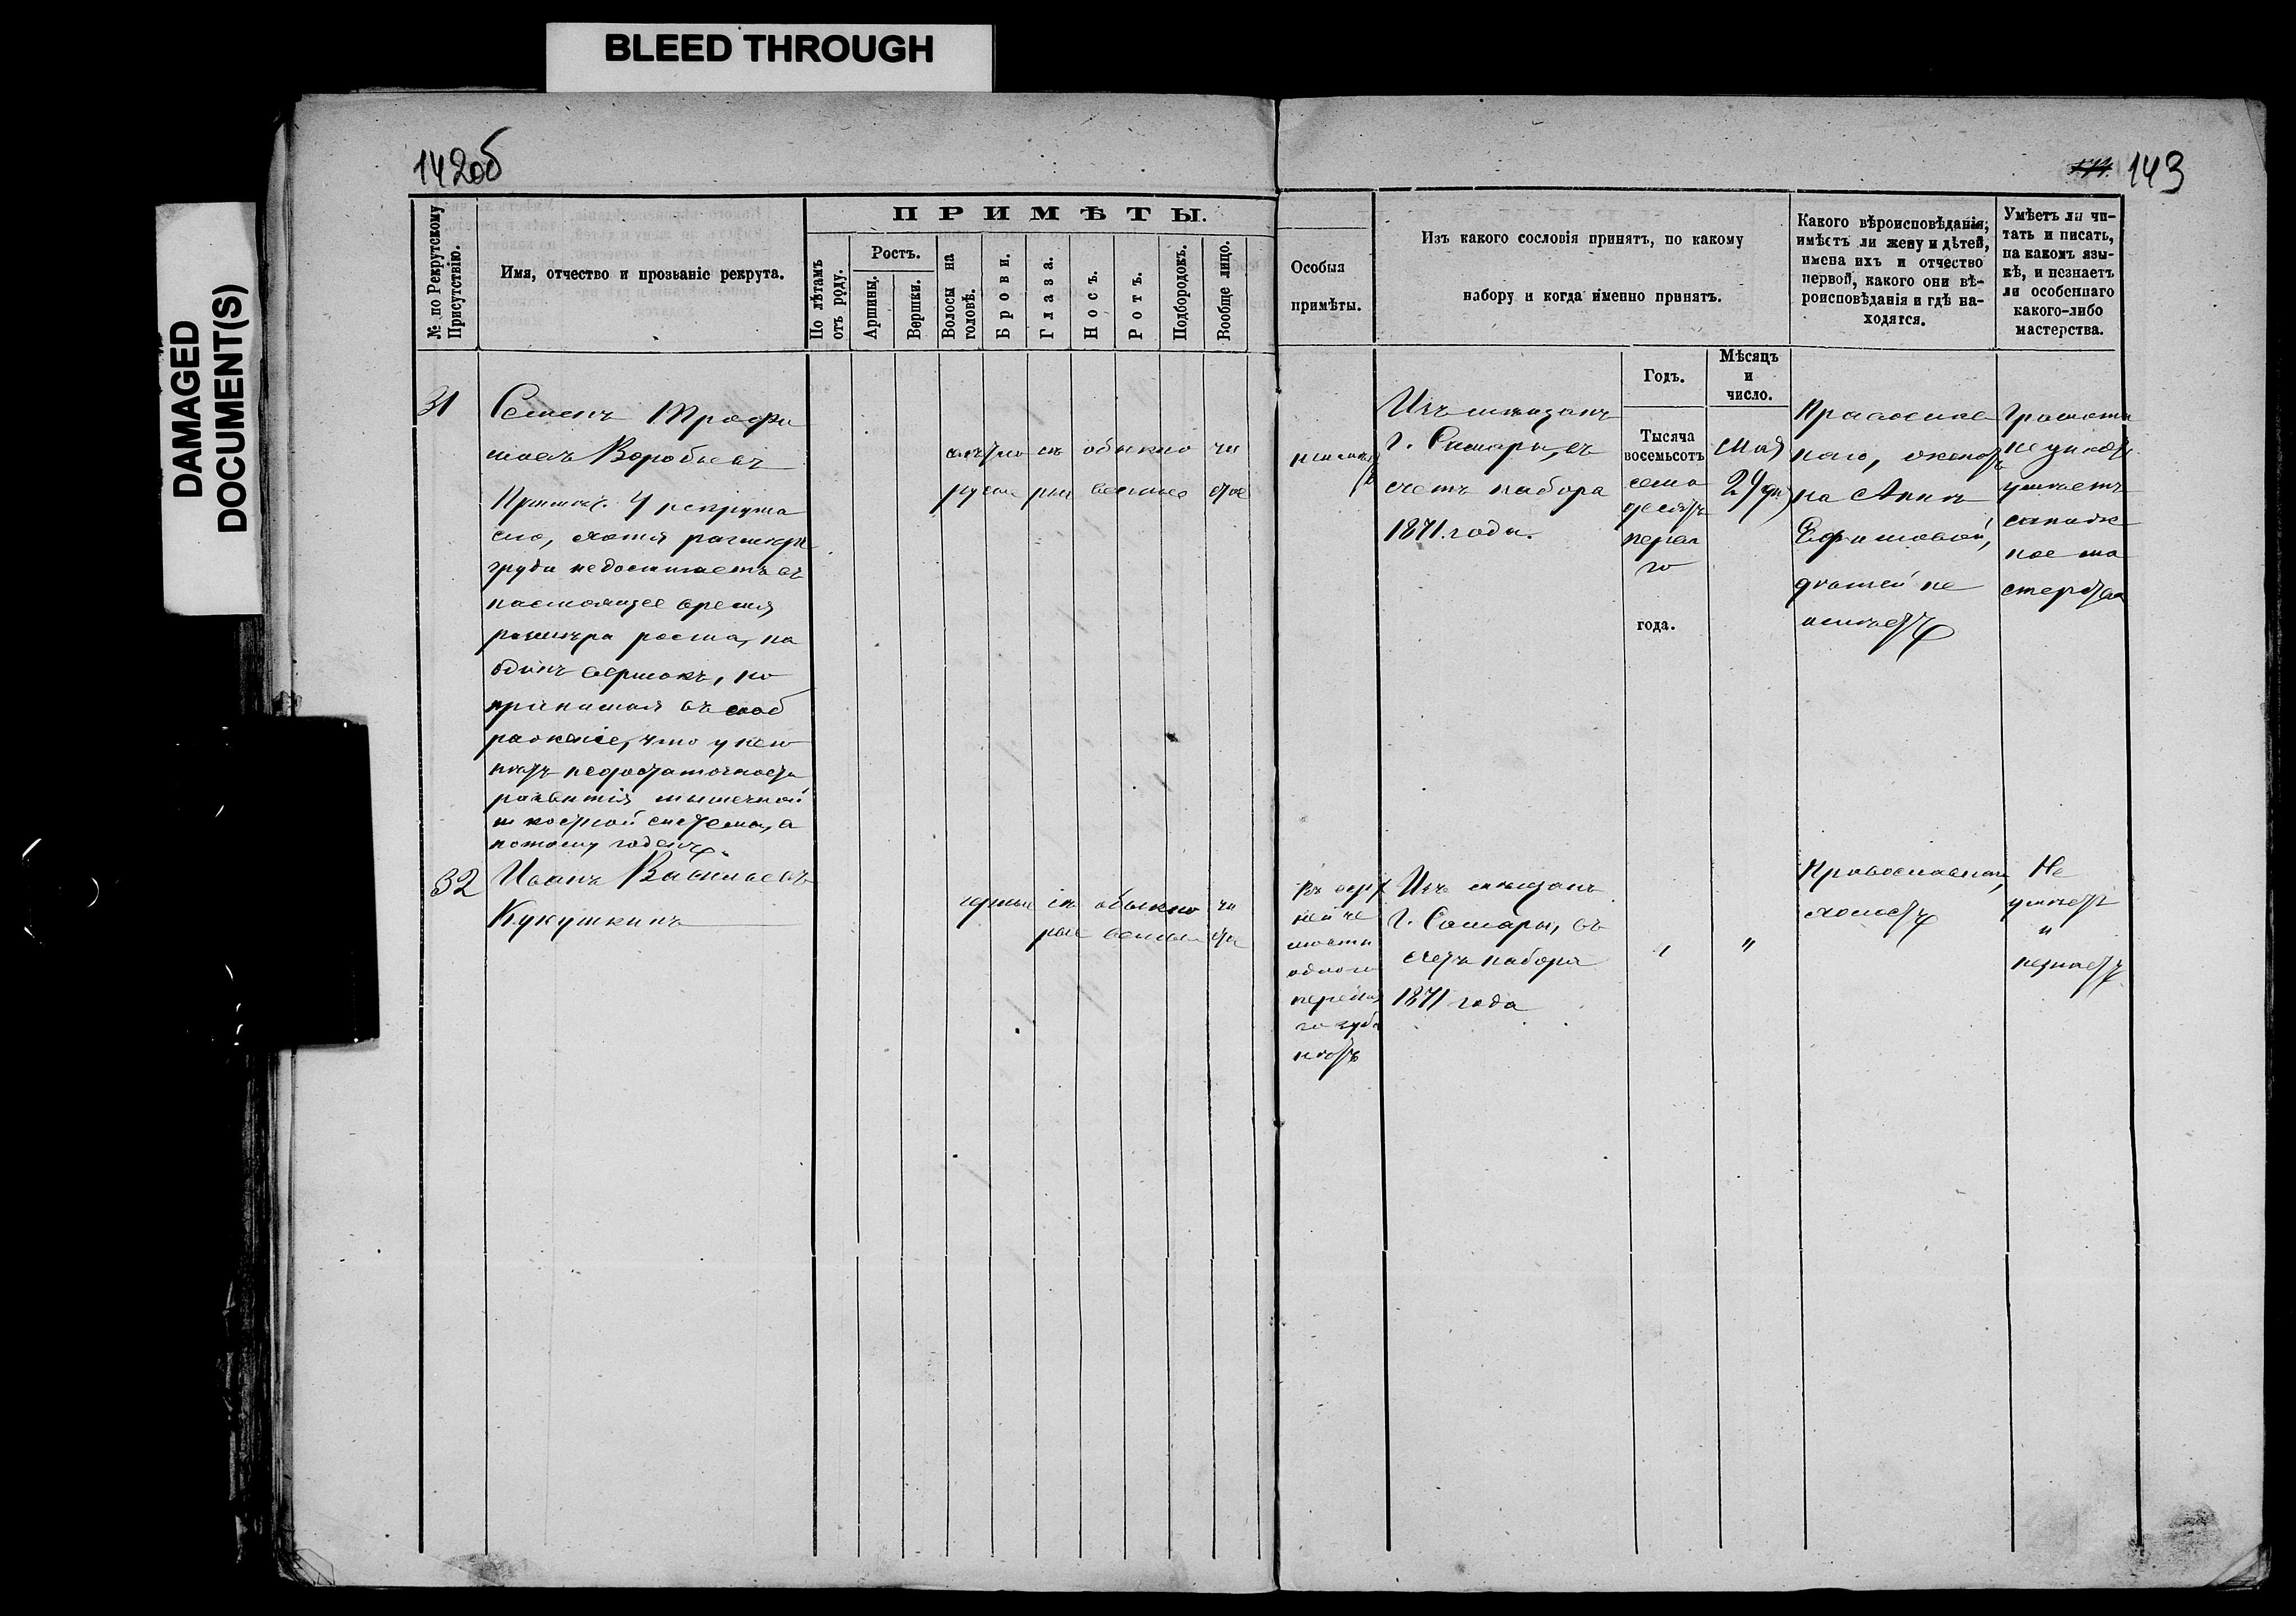 BLEED THROUGH
DAMAGED
DOCUMENT(S)
142об
143
№ по Рекрутскому
Присутствію.
Имя, отчество и прозваніе рекрута.
ПРИМѢТЫ.
По лѣтамъ
отъ роду.
Ростъ.
Аршины.
Вершки.
Волосы на
головѣ.
Брови.
Глаза.
Носъ.
Ротъ.
Подбородокъ.
Вообще лицо.
Особыя
примѣты.
Изъ какого сословія принятъ, по какому
набору и когда именно принятъ.
Какого вѣроисповѣданія;
имѣетъ ли жену и дѣтей,
имена ихъ и отчество
первой, какого они вѣ-
роисповѣданія и гдѣ на-
ходятся.
Умѣетъ ли чи-
тать и писать,
на какомъ язы-
кѣ, и незнаетъ
ли особеннаго
какого-либо
мастерства.
Годъ.
Мѣсяцъ
и
число.
31
Семенъ Трофи
мовъ Воробьевъ
Примѣч. У рекрута
сего, хотя размѣръ
груди недостигаетъ въ
настоящее время
размѣра роста, на
одинъ вершокъ, но
принимая въ сооб
раженіе, что у него
нѣтъ недостаточности
развитія мышечной
и костной системы, а
потому годенъ.
свѣтло
русые
сѣ
рые
обыкно
венные
чи
стое
Изъ мѣщанъ
г. Самары, въ
счетъ набора
1871 года.
Тысяча
восемьсотъ
семь
десятъ
перва
го
года.
Мая
29 дня
Православ
наго, женатъ
на Аннѣ
Ефимовой,
дѣтей не
имѣетъ
Грамотѣ
незнаетъ
умѣетъ
сапож
ное ма
стерство
32
Иванъ Васильевъ
Кукушкинъ
черные
сѣ
рые
обыкно
венные
чи
стое
Въ верх
ней че
люсти
одного
передня
го зуба
нѣтъ
Изъ мѣщанъ
г. Самары, въ
счетъ набора
1871 года
"
"
Православнаго,
холостъ
Не
умѣетъ
и
незнаетъ